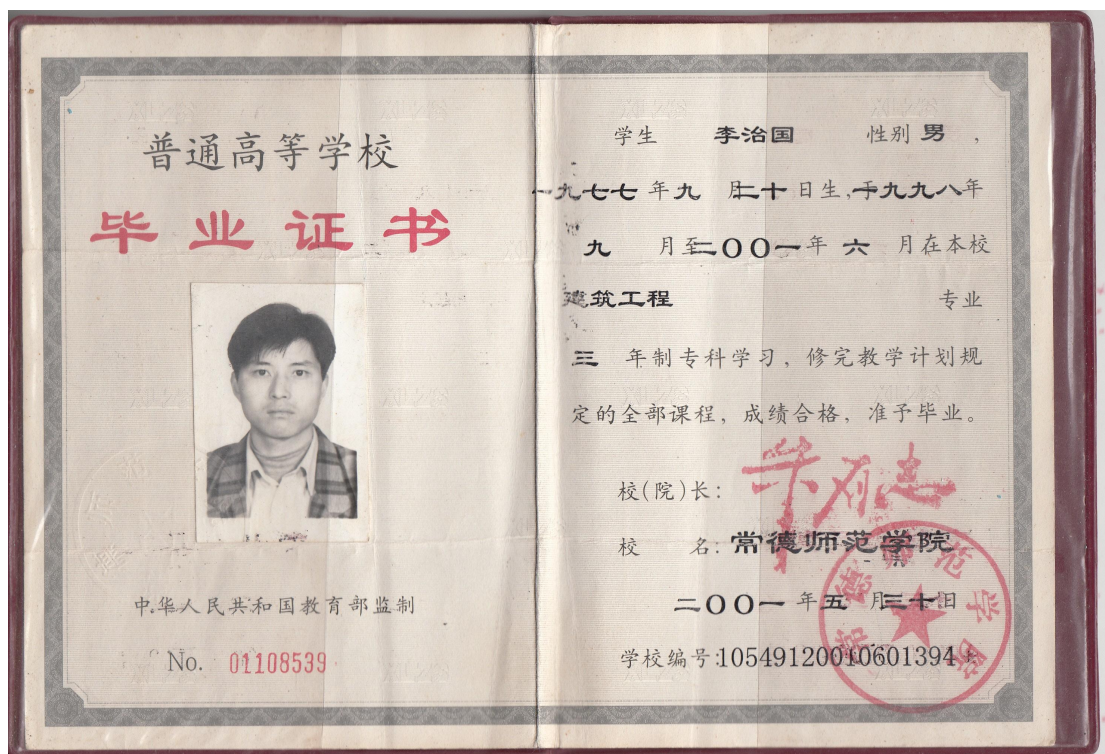 普通高等学校
毕业证书
中华人民共和国教育部监制
No. 01108539
学生 李治国 性别 男，
一九七七年九月二十日生，于一九九八年
九月至二〇〇一年六月在本校
建筑工程 专业
三年制专科学习，修完教学计划规
定的全部课程，成绩合格，准予毕业。
校(院)长：
校名：常德师范学院
二〇〇一年五月三十日
学校编号：10549120010601394
常德师范学院